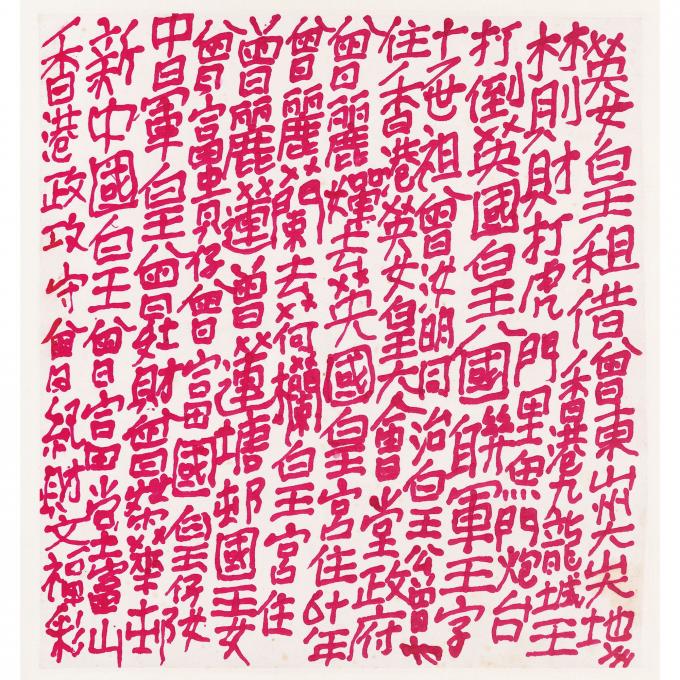 英女皇租借曾東州大尖地
林則財香港九龍城王
林則打虎門里魚門炮台
打倒英國皇國聯軍王字
十世祖曾汝明同治皇公曾
住香港英女皇大會堂政府
曾麗嬋去英國皇宮住6十年
曾麗蘭去荷欄皇宮住
曾麗蓮曾蓮塘邨國王女
曾富貴仔曾富國皇仔女
中日軍皇曾財曾榮華邨
新中國皇曾富田堂富山
香港政攻守曾日紀財文福彩